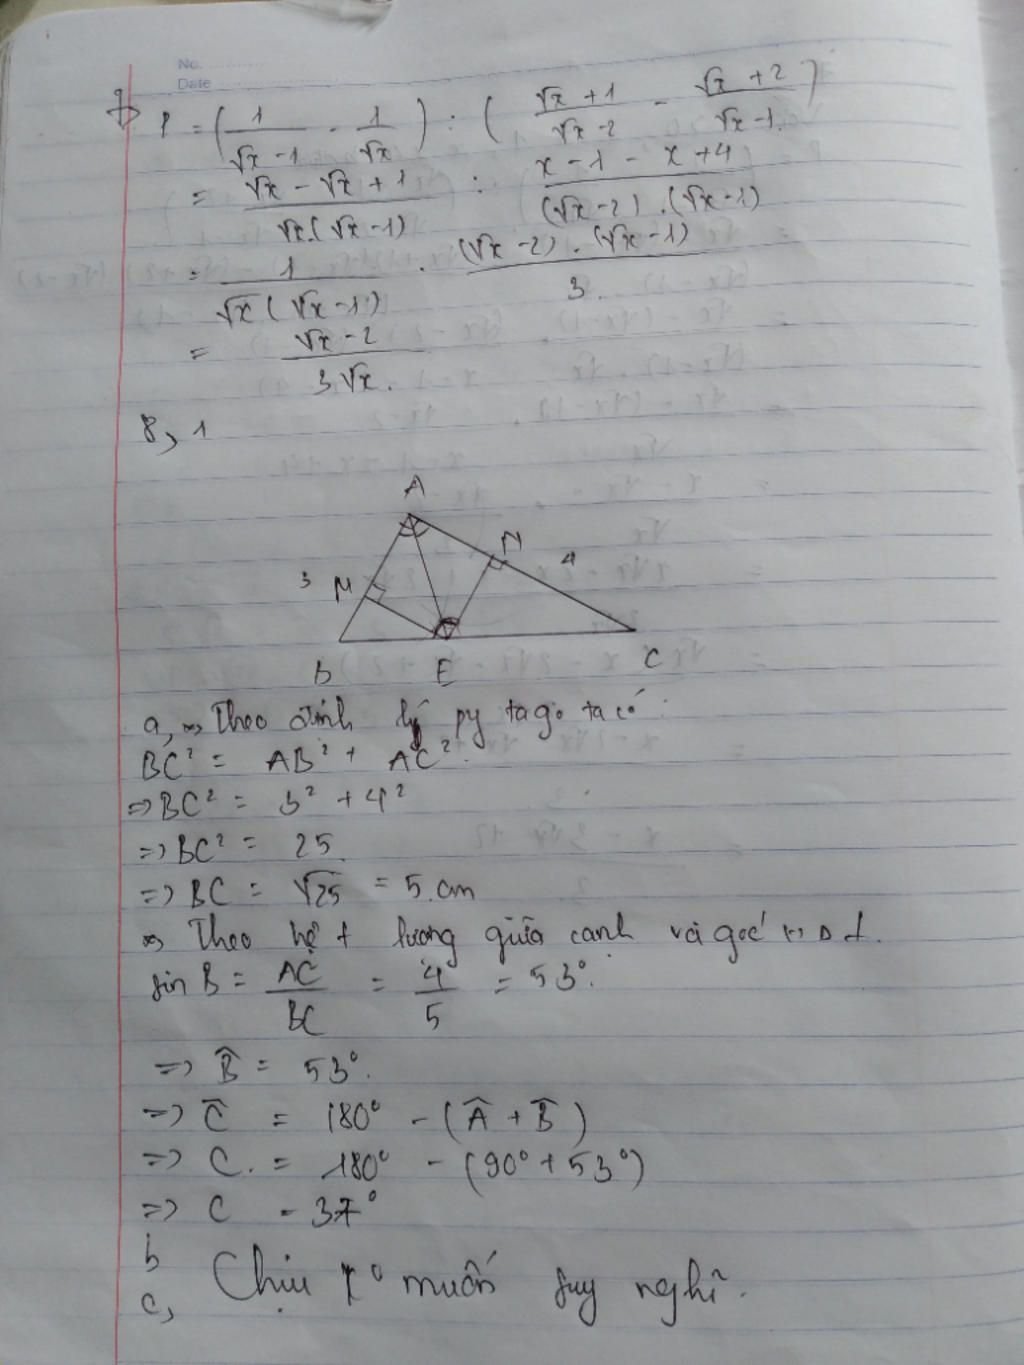 No.
Date
P = (1/(√x - 1) - 1/√x) : ((√x + 1)/(√x - 2) - (√x + 2)/(√x - 1))
= (√x - √x + 1)/(√x.(√x - 1)) : (x - 1 - x + 4)/((√x - 2).(√x - 1))
= 1/(√x(√x - 1)) . ((√x - 2).(√x - 1))/3.
= (√x - 2)/(3√x).
8, 1
A
N
3 M 4
B E C
a, Theo định lý py ta go ta có:
BC² = AB² + AC².
=> BC² = 3² + 4²
=> BC² = 25.
=> BC = √25 = 5.cm
Theo hệ t lương giữa cạnh và goc
sin B = AC/BC = 4/5 = 53°.
=> B̂ = 53°.
=> Ĉ = 180° - (Â + B̂)
=> C. = 180° - (90° + 53°)
=> C = 37°
b
c, Chịu k° muốn suy nghĩ.